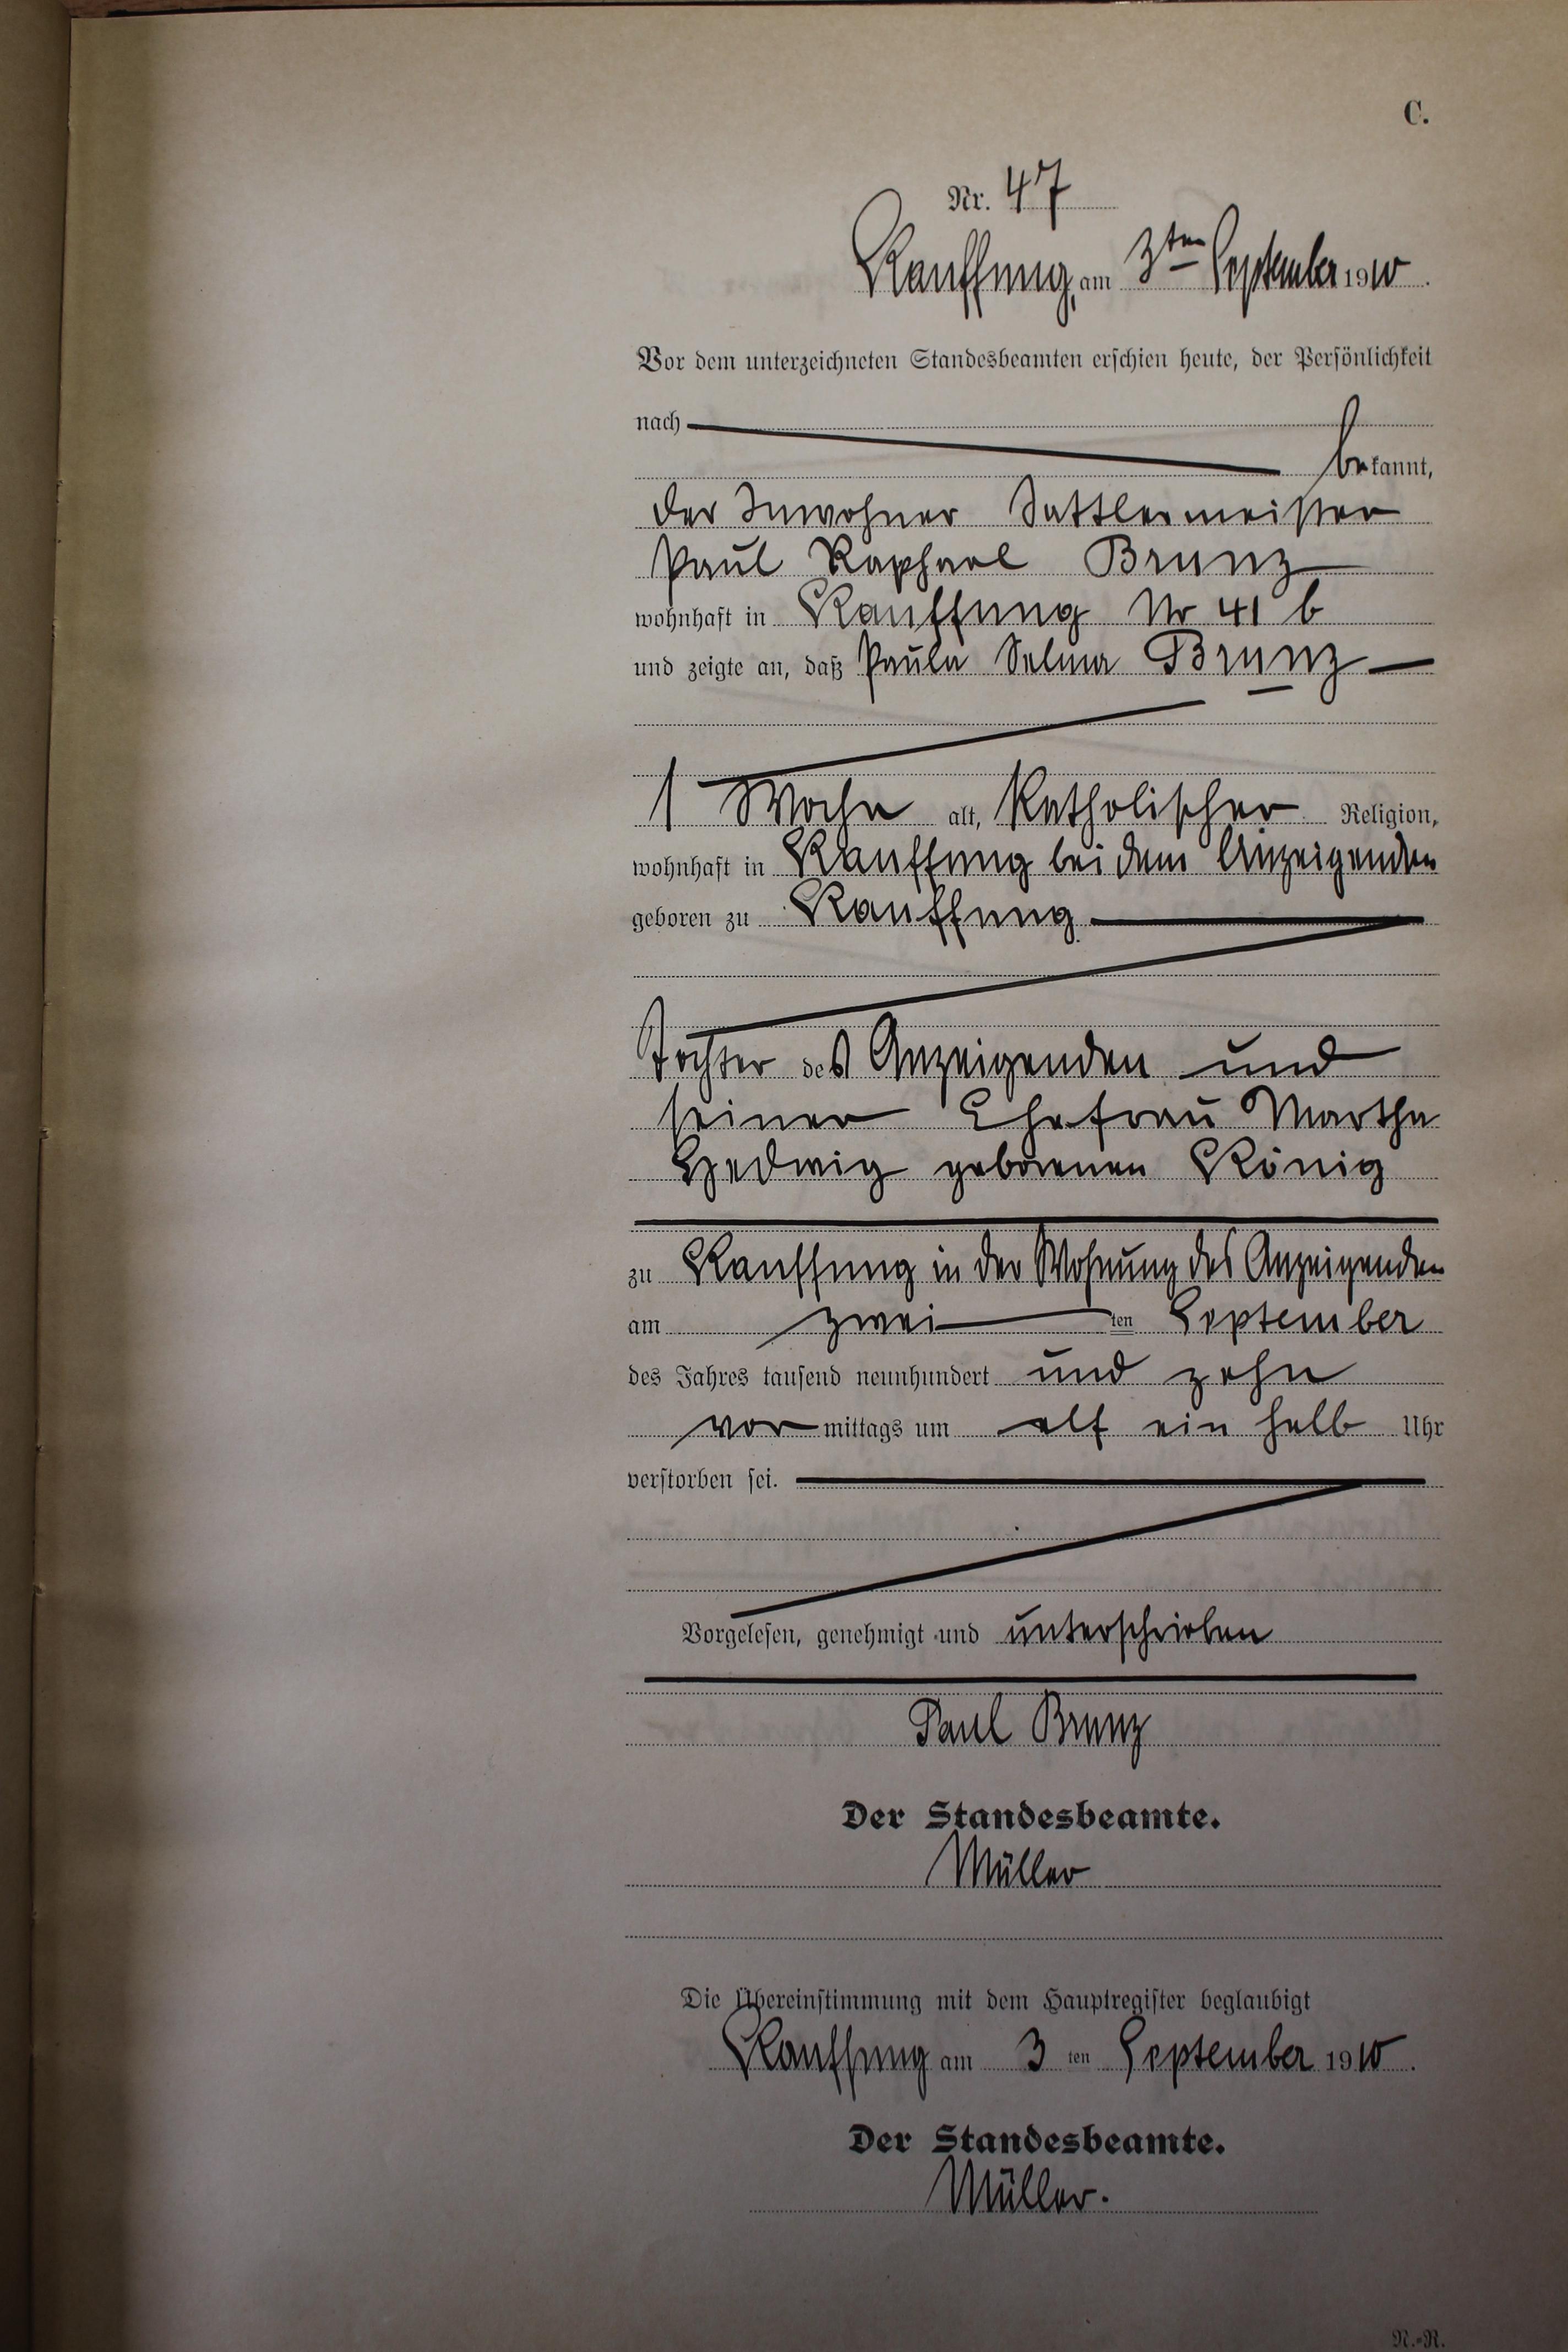 C.
Nr. 47
Kauffung, am 3ten September 1910.
Vor dem unterzeichneten Standesbeamten erschien heute, der Persönlichkeit
nach
bekannt,
der Inwohner Sattlermeister
Paul Raphael Brunz
wohnhaft in Kauffung Nr 41 b
und zeigte an, daß Paula Selma Brunz
1 Woche alt, Katholischer Religion,
wohnhaft in Kauffung bei dem Anzeigenden
geboren zu Kauffung
Tochter des Anzeigenden und
seiner Ehefrau Martha
Hedwig geborenen König
zu Kauffung in der Wohnung des Anzeigenden
am zwei ten September
des Jahres tausend neunhundert und zehn
vor mittags um elf ein halb Uhr
verstorben sei.
Vorgelesen, genehmigt und unterschrieben
Paul Brunz
Der Standesbeamte.
Müller
Die Übereinstimmung mit dem Hauptregister beglaubigt
Kauffung am 3 ten September 1910.
Der Standesbeamte.
Müller.
N.-R.